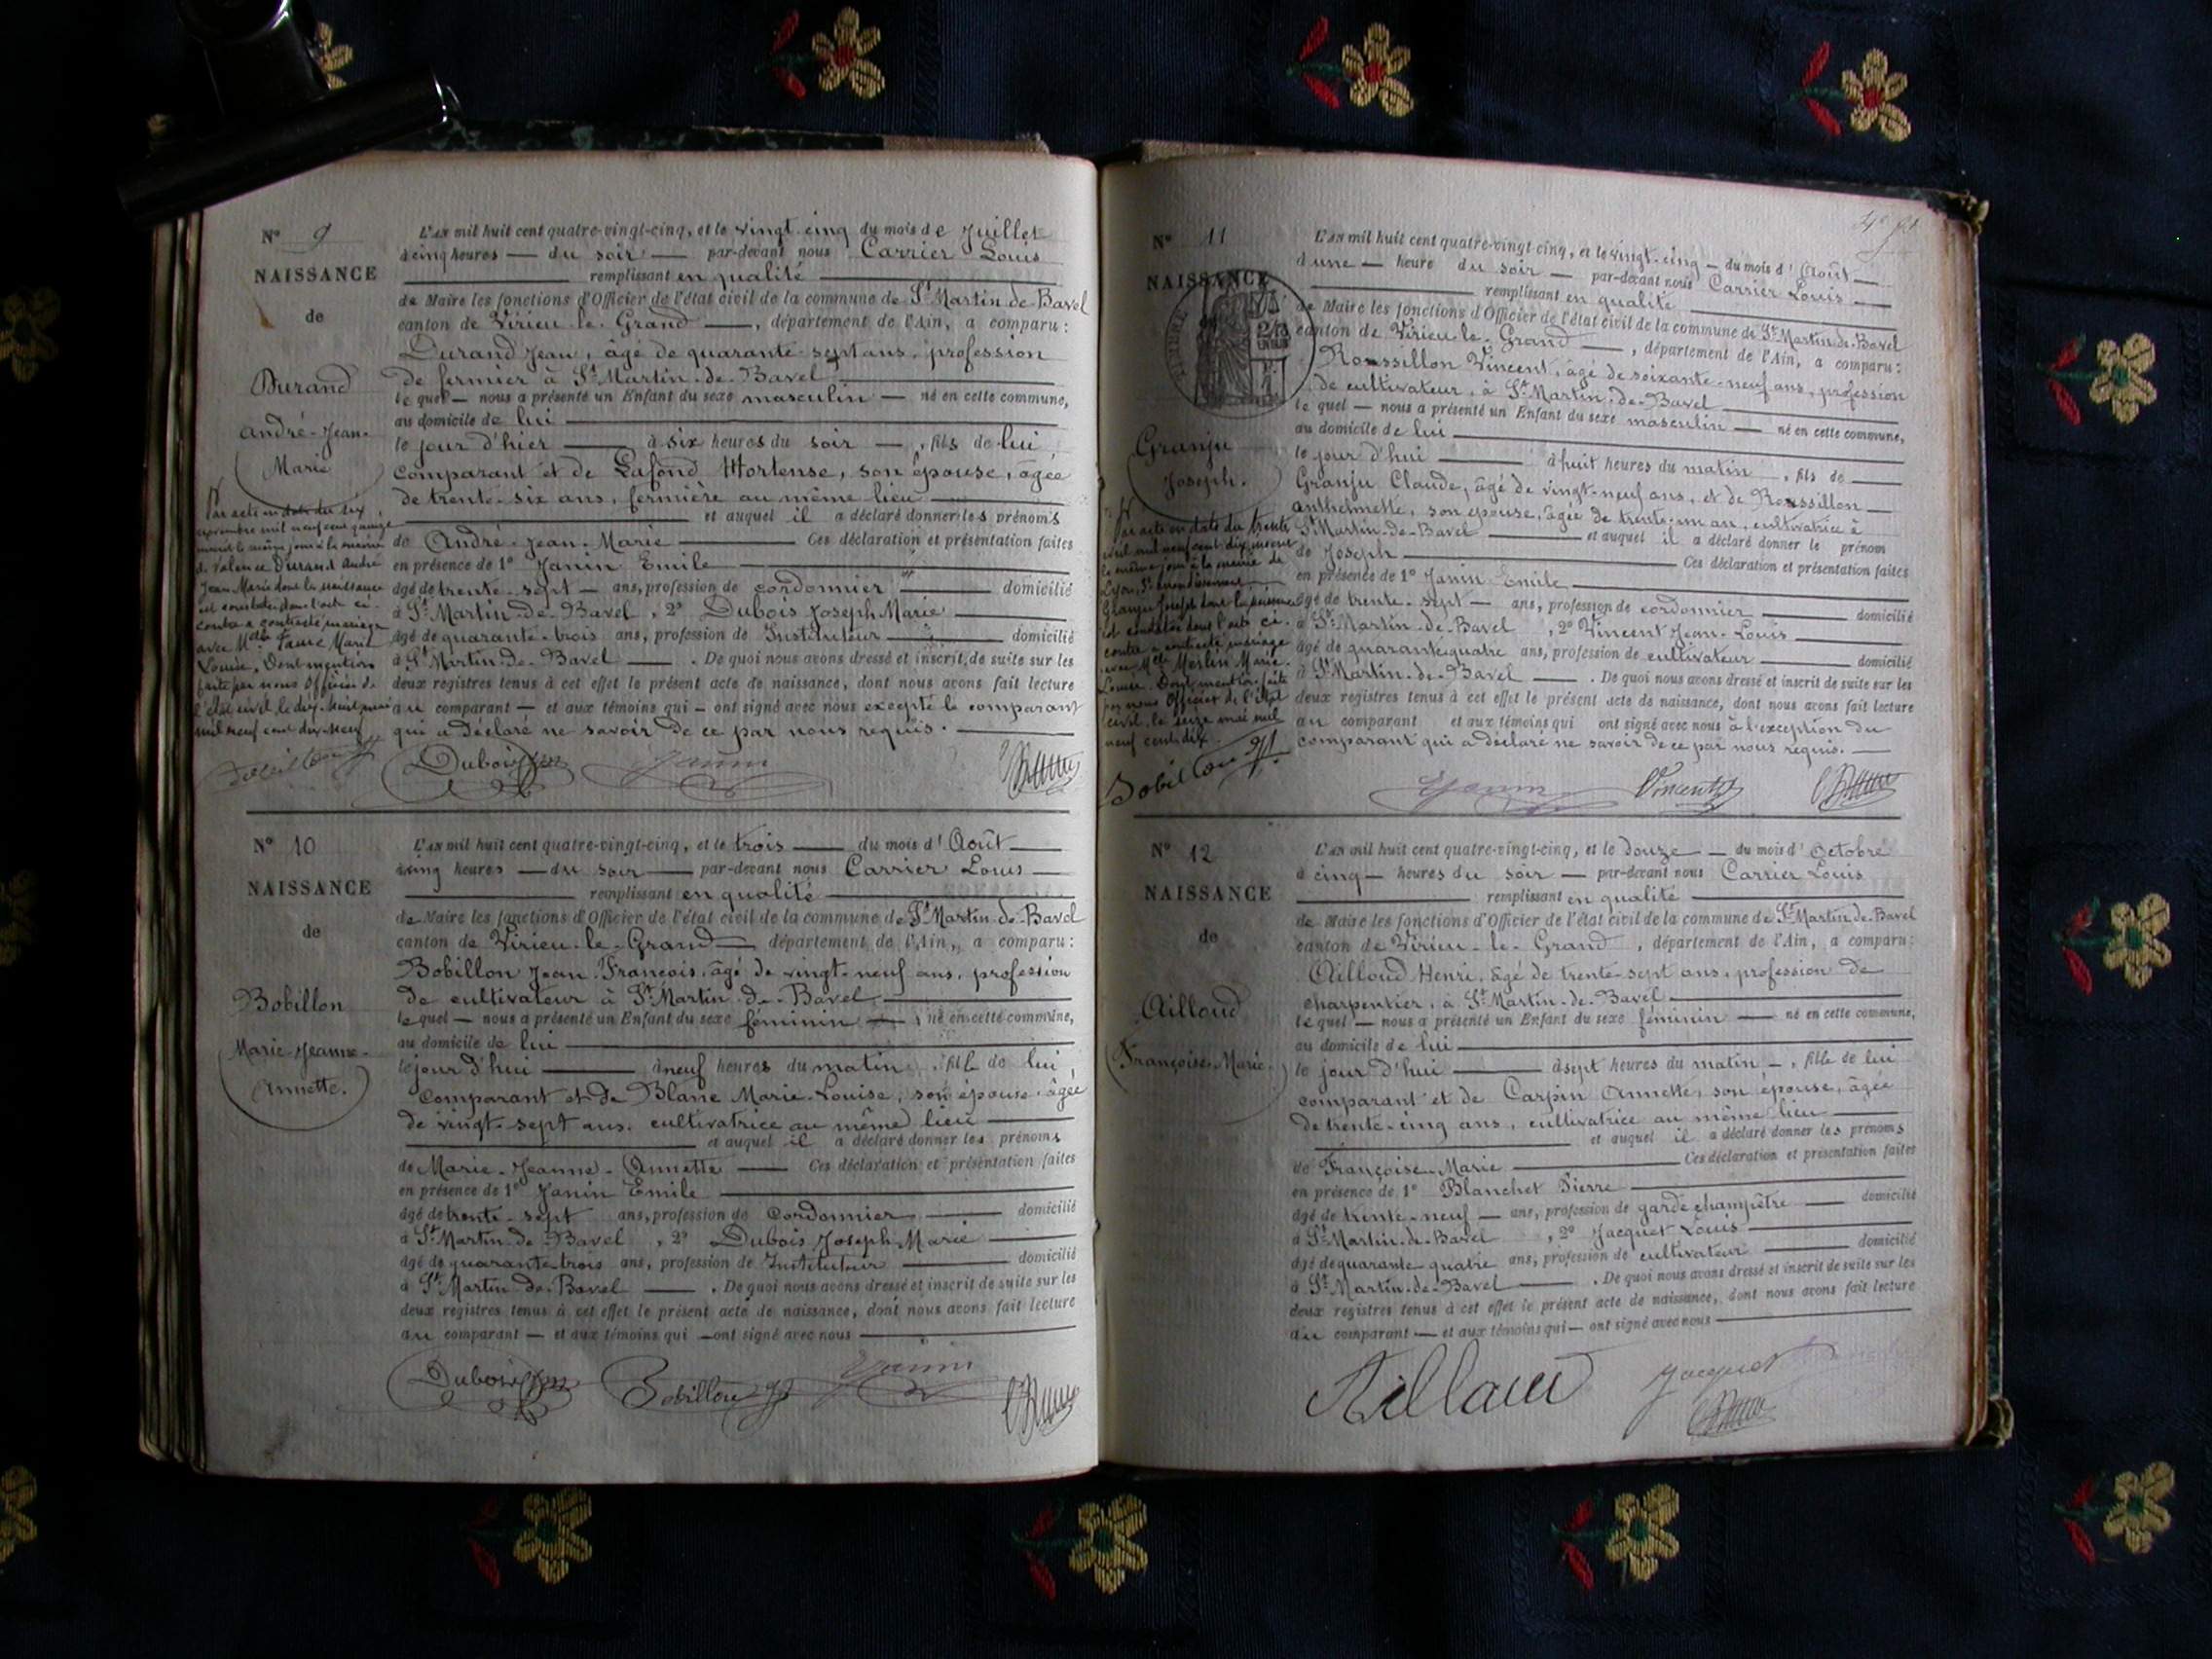 N° 9
NAISSANCE
de
Durand
André-Jean-
Marie
L'AN mil huit cent quatre-vingt-cinq, et le vingt-cinq du mois de Juillet
à cinq heures — du soir — par-devant nous Carrier Louis
remplissant en qualité
de Maire les fonctions d'Officier de l'état civil de la commune de St Martin-de-Bavel
canton de Virieu-le-Grand —, département de l'Ain, a comparu:
Durand Jean, âgé de quarante-sept ans, profession
de fermier à St Martin-de-Bavel
le quel — nous a présenté un Enfant du sexe masculin — né en cette commune,
au domicile de lui
le jour d'hier — à six heures du soir —, fils de lui
comparant et de Lafond Hortense, son épouse, âgée
de trente-six ans, fermière au même lieu
et auquel il a déclaré donner les prénoms
de André-Jean-Marie — Ces déclaration et présentation faites
en présence de 1° Janin Emile
âgé de trente-sept — ans, profession de cordonnier — domicilié
à St Martin-de-Bavel, 2° Dubois Joseph-Marie
âgé de quarante-trois ans, profession de Instituteur — domicilié
à St Martin-de-Bavel —. De quoi nous avons dressé et inscrit de suite sur les
deux registres tenus à cet effet le présent acte de naissance, dont nous avons fait lecture
au comparant — et aux témoins qui — ont signé avec nous excepté le comparant
qui a déclaré ne savoir de ce par nous requis.
Par acte en date du six
mil neuf cent quinze
le même jour à la mairie
de Valence Durand André
Jean Marie dont la naissance
est constatée dans l'acte ci-
contre a contracté mariage
avec Mlle Faure Marie
Louise. Dont mention
faite par nous Officier de
l'état civil le dix-huit
mil neuf cent dix-neuf
Dubois Janin
N° 10
NAISSANCE
de
Bobillon
Marie-Jeanne-
Annette.
L'AN mil huit cent quatre-vingt-cinq, et le trois — du mois d'Août
à cinq heures — du soir — par-devant nous Carrier Louis
remplissant en qualité
de Maire les fonctions d'Officier de l'état civil de la commune de St Martin-de-Bavel
canton de Virieu-le-Grand — département de l'Ain, a comparu:
Bobillon Jean François, âgé de vingt-neuf ans, profession
de cultivateur à St Martin-de-Bavel
le quel — nous a présenté un Enfant du sexe féminin — né en cette commune,
au domicile de lui
le jour d'hui — à neuf heures du matin, fille de lui,
comparant et de Blanc Marie-Louise, son épouse, âgée
de vingt-sept ans, cultivatrice au même lieu
et auquel il a déclaré donner les prénoms
de Marie-Jeanne-Annette — Ces déclaration et présentation faites
en présence de 1° Janin Emile
âgé de trente-sept ans, profession de cordonnier — domicilié
à St Martin-de-Bavel, 2° Dubois Joseph-Marie
âgé de quarante-trois ans, profession de Instituteur — domicilié
à St Martin-de-Bavel —. De quoi nous avons dressé et inscrit de suite sur les
deux registres tenus à cet effet le présent acte de naissance, dont nous avons fait lecture
au comparant — et aux témoins qui — ont signé avec nous
Dubois Bobillon Janin
N° 11
NAISSANCE
Granju
Joseph.
L'AN mil huit cent quatre-vingt-cinq, et le vingt-cinq — du mois d'Août
à une — heure du soir — par-devant nous Carrier Louis
remplissant en qualité
de Maire les fonctions d'Officier de l'état civil de la commune de St Martin-de-Bavel
canton de Virieu-le-Grand —, département de l'Ain, a comparu:
Roussillon Vincent, âgé de soixante-neuf ans, profession
de cultivateur, à St Martin-de-Bavel
le quel — nous a présenté un Enfant du sexe masculin — né en cette commune,
au domicile de lui
le jour d'hui — à huit heures du matin, fils de
Granju Claude, âgé de vingt-neuf ans, et de Roussillon
Anthelmette, son épouse, âgée de trente-un an, cultivatrice à
St Martin-de-Bavel — et auquel il a déclaré donner le prénom
de Joseph — Ces déclaration et présentation faites
en présence de 1° Janin Emile
âgé de trente-sept — ans, profession de cordonnier — domicilié
à St Martin-de-Bavel, 2° Vincent Jean-Louis
âgé de quarante-quatre ans, profession de cultivateur — domicilié
à St Martin-de-Bavel —. De quoi nous avons dressé et inscrit de suite sur les
deux registres tenus à cet effet le présent acte de naissance, dont nous avons fait lecture
au comparant et aux témoins qui ont signé avec nous à l'exception du
comparant qui a déclaré ne savoir de ce par nous requis.
Par acte en date du trente
avril mil neuf cent dix
le même jour à la mairie de
Lyon, 3e arrondissement
Granju Joseph dont la naissance
est constatée dans l'acte ci-
contre a contracté mariage
avec Mlle Merlin Marie-
Louise. Dont mention faite
par nous Officier de l'état
civil le seize mai mil
neuf cent dix.
Bobillon
Janin Vincent
N° 12
NAISSANCE
de
Ailloud
Françoise-Marie.
L'AN mil huit cent quatre-vingt-cinq, et le douze — du mois d'Octobre
à cinq — heures du soir — par-devant nous Carrier Louis
remplissant en qualité
de Maire les fonctions d'Officier de l'état civil de la commune de St Martin-de-Bavel
canton de Virieu-le-Grand, département de l'Ain, a comparu:
Ailloud Henri, âgé de trente-sept ans, profession de
charpentier, à St Martin-de-Bavel
le quel — nous a présenté un Enfant du sexe féminin — né en cette commune,
au domicile de lui
le jour d'hui — à sept heures du matin —, fille de lui
comparant et de Carpin Annette, son épouse, âgée
de trente-cinq ans, cultivatrice au même lieu
et auquel il a déclaré donner les prénoms
de Françoise-Marie — Ces déclaration et présentation faites
en présence de 1° Blanchet Pierre
âgé de trente-neuf — ans, profession de garde champêtre — domicilié
à St Martin-de-Bavel, 2° Jacquet Louis
âgé de quarante-quatre ans, profession de cultivateur — domicilié
à St Martin-de-Bavel —. De quoi nous avons dressé et inscrit de suite sur les
deux registres tenus à cet effet le présent acte de naissance, dont nous avons fait lecture
au comparant — et aux témoins qui — ont signé avec nous
Aillaud Jacquet